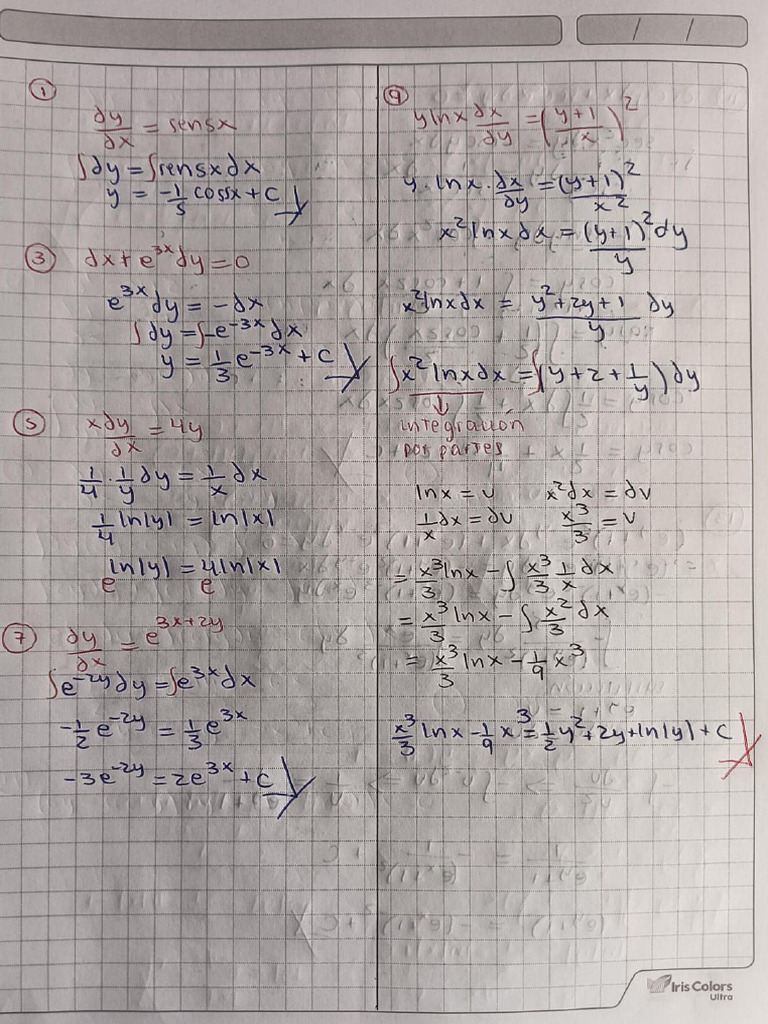 / /
①
dy/dx = sen5x
∫dy = ∫sen5x dx
y = -1/5 cos5x + C
③ dx + e^3x dy = 0
e^3x dy = -dx
∫dy = ∫-e^-3x dx
y = 1/3 e^-3x + C
⑤ x dy/dx = 4y
1/4 · 1/y dy = 1/x dx
1/4 ln|y| = ln|x|
e^ln|y| = e^4ln|x|
⑦ dy/dx = e^3x+2y
∫e^-2y dy = ∫e^3x dx
-1/2 e^-2y = 1/3 e^3x
-3e^-2y = 2e^3x + C
⑨
y ln x dx/dy = (y+1/x)^2
y · ln x · dx/dy = (y+1)^2/x^2
x^2 ln x dx = (y+1)^2/y dy
x^2 ln x dx = y^2+2y+1/y dy
∫x^2 ln x dx = ∫(y + 2 + 1/y) dy
integración
por partes
ln x = u x^2 dx = dv
1/x dx = du x^3/3 = v
= x^3/3 ln x - ∫ x^3/3 1/x dx
= x^3/3 ln x - ∫ x^2/3 dx
= x^3/3 ln x - 1/9 x^3
x^3/3 ln x - 1/9 x^3 = 1/2 y^2 + 2y + ln|y| + C
Iris Colors
Ultra